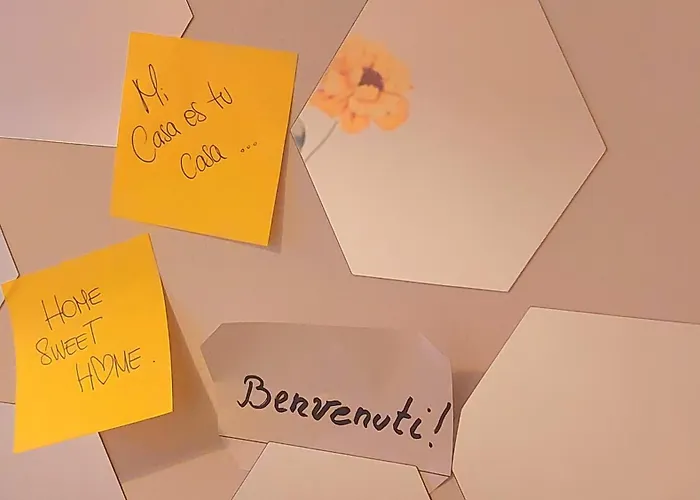 Mi
Casa es tu
Casa ...
HOME
SWEET
HOME.
Benvenuti!